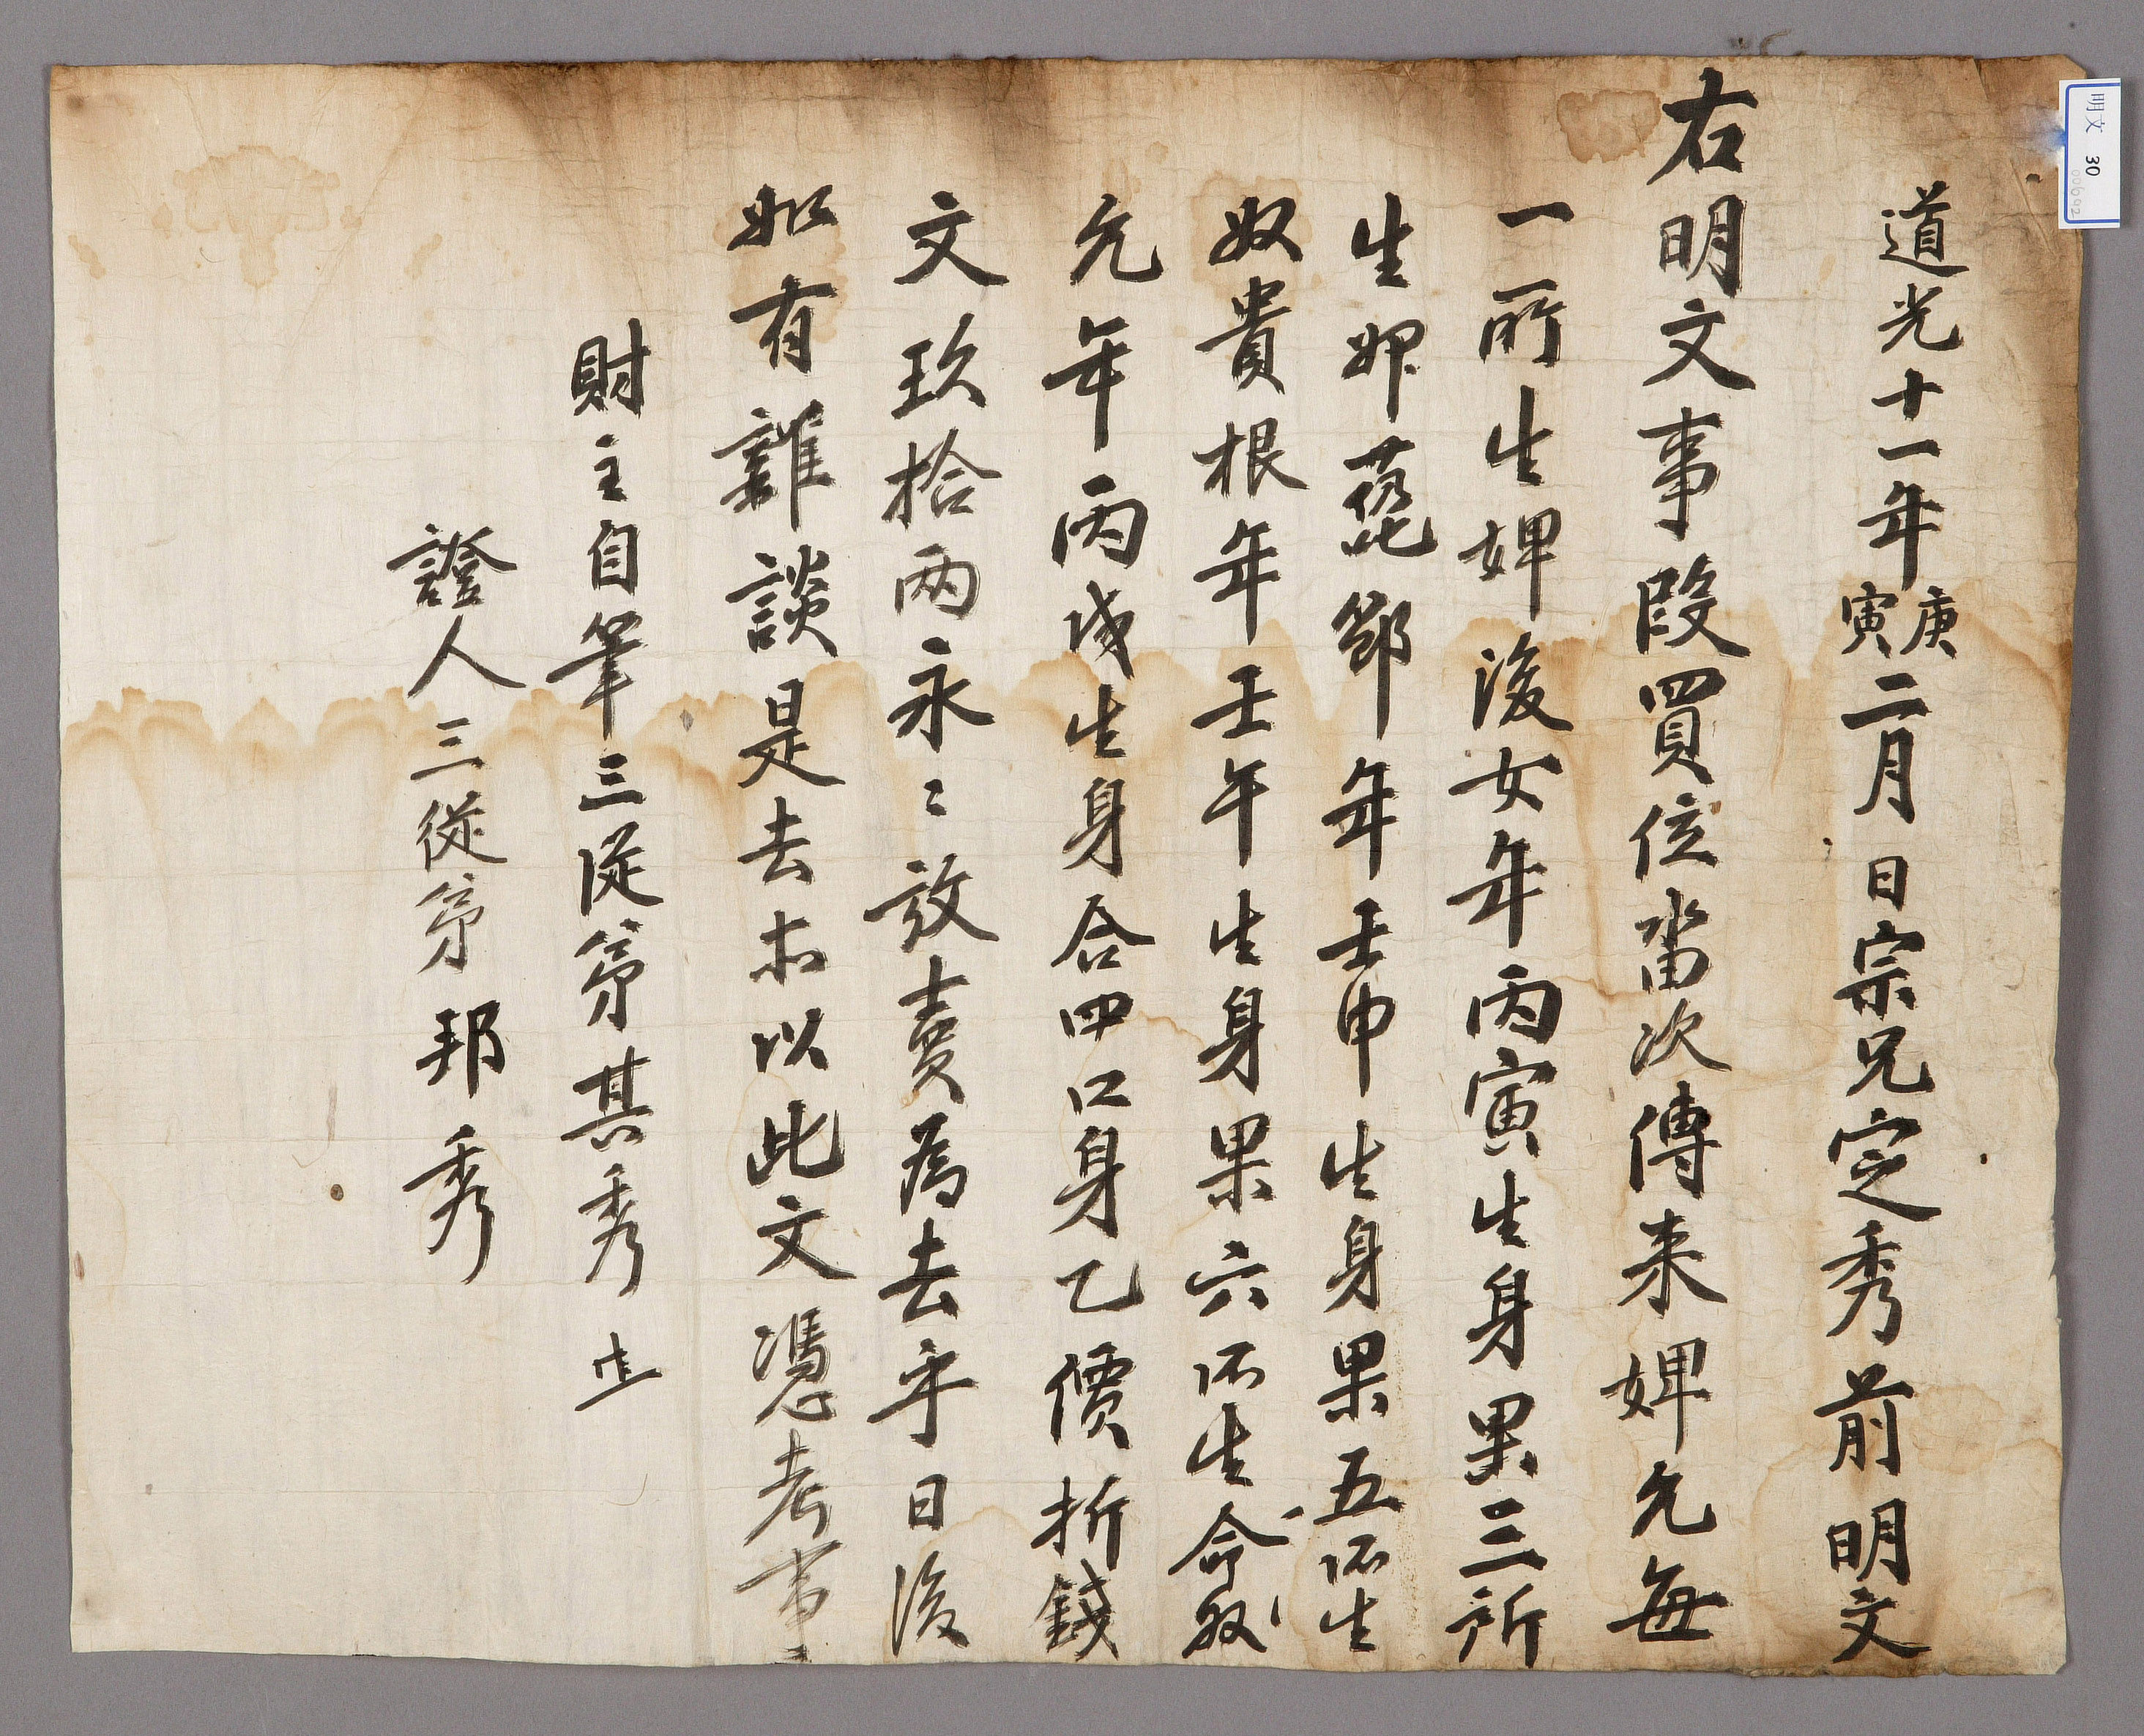 道光十一年庚寅二月日宗兄定秀前明文
右明文事段買位畓次傳来婢允每
一所生婢後女年丙寅生身果三所
生婢 年壬申生身果五所生
奴貴根年壬午生身果六所生命奴
允年丙戌生身合四口身乙價折錢
文玖拾兩永〻放賣爲去乎日後
如有雜談是去未以此文憑考事
財主自筆三從弟其秀
證人三從弟邦秀
明文 30